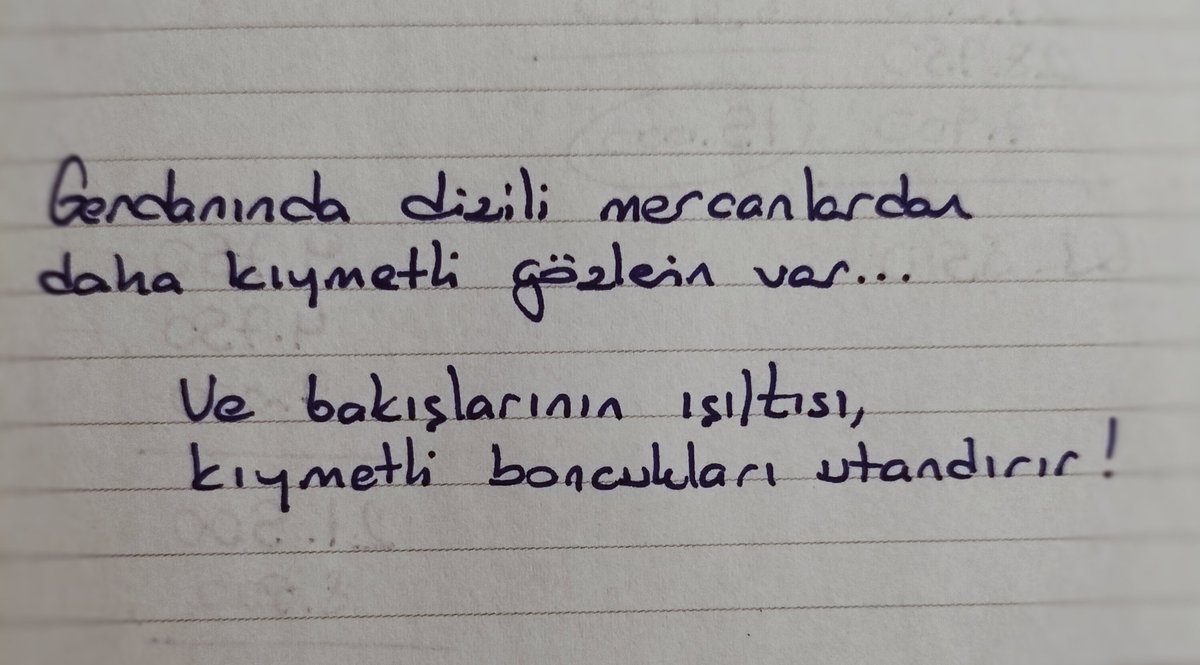 Gerdanında dizili mercanlardan
daha kıymetli gözlerin var...
Ve bakışlarının ışıltısı,
kıymetli boncukları utandırır!